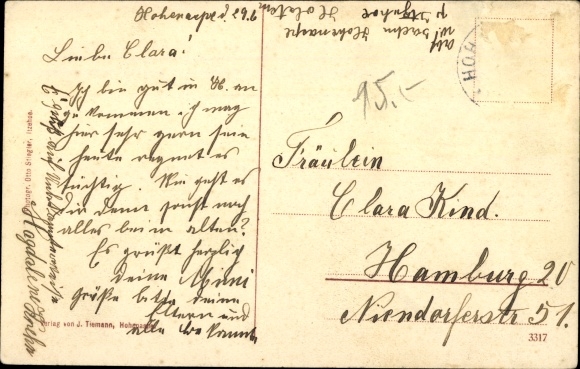 Hohenaspe d. 29.6
Liebe Clara!
Ich bin gut in H. an
gekommen. Ich mag
hier sehr gern sein
heute regnet es
tüchtig. Wie geht es
dir denn sonst noch
alles beim alten?
Es grüßt herzlich
deine Mimi
Grüße bitte deine
Eltern und
alle Bekannte
Es grüßt auch
Magdalene
Photogr. Otto Striegler, Itzehoe.
Verlag von J. Tiemann, Hohenaspe
Hohenaspe
p. Itzehoe
Holstein
HOH
95.-
Fräulein
Clara Kind.
Hamburg 20
Niendorferstr 51.
3317